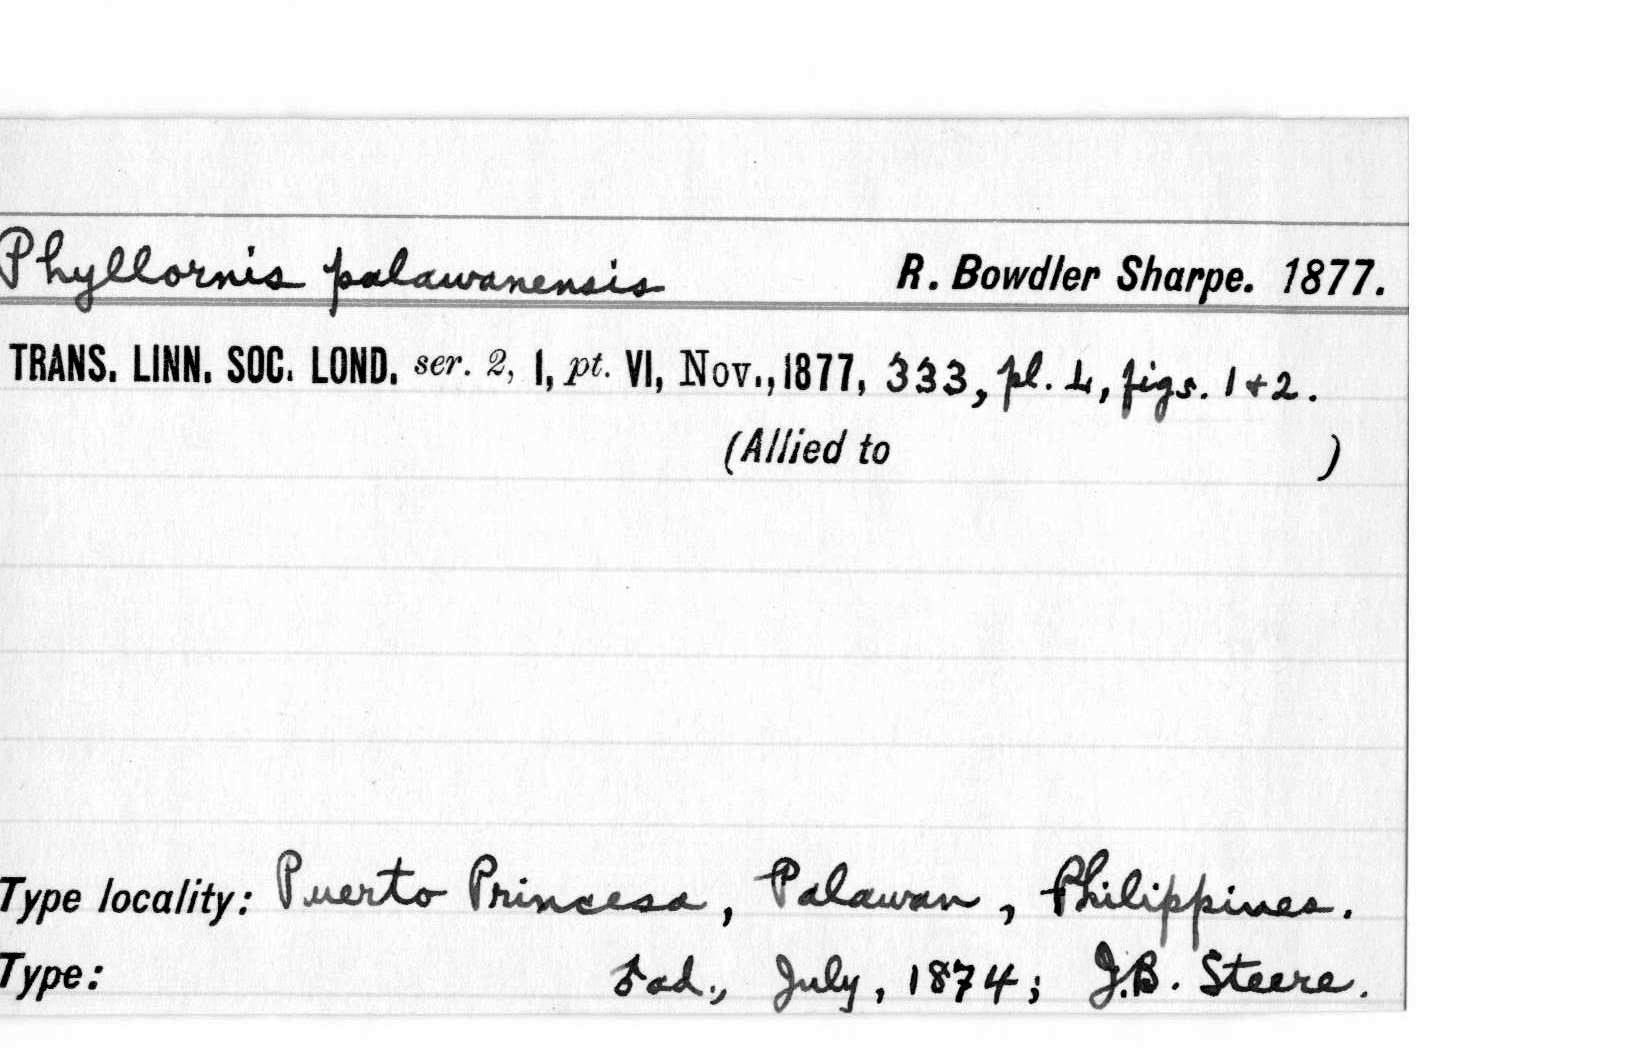 Phyllornis palawanensis R. Bowdler Sharpe. 1877.
TRANS. LINN. SOC. LOND. ser. 2, I, pt. VI, Nov., 1877, 333, pl. L, figs. 1 + 2.
(Allied to )
Type locality: Puerto Princesa, Palawan, Philippines.
Type: ♂ ad., July, 1874; J.B. Steere.